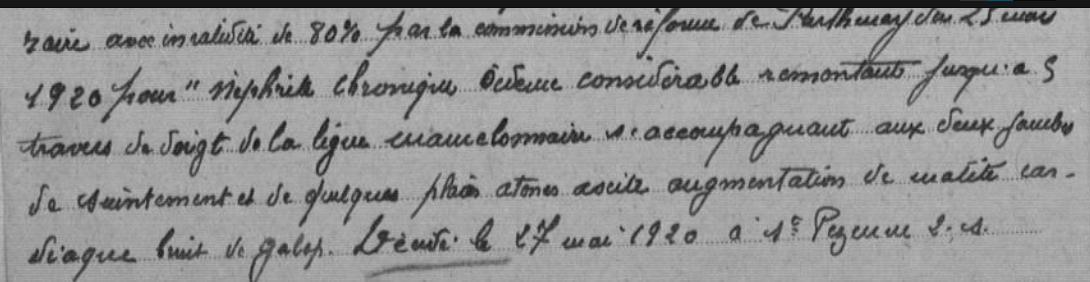 raire avec invalidité de 80% par la commission de réforme de Parthenay du 25 mars
1920 pour " néphrite chronique Œdème considérable remontant jusqu'à 5
travers de doigt de la ligne mamelonnaire s'accompagnant aux deux jambes
de suintement et de quelques plaies atones ascite augmentation de matité car-
diaque bruit de galop. Décédé le 27 mai 1920 à Ste Pezenne 2. S.